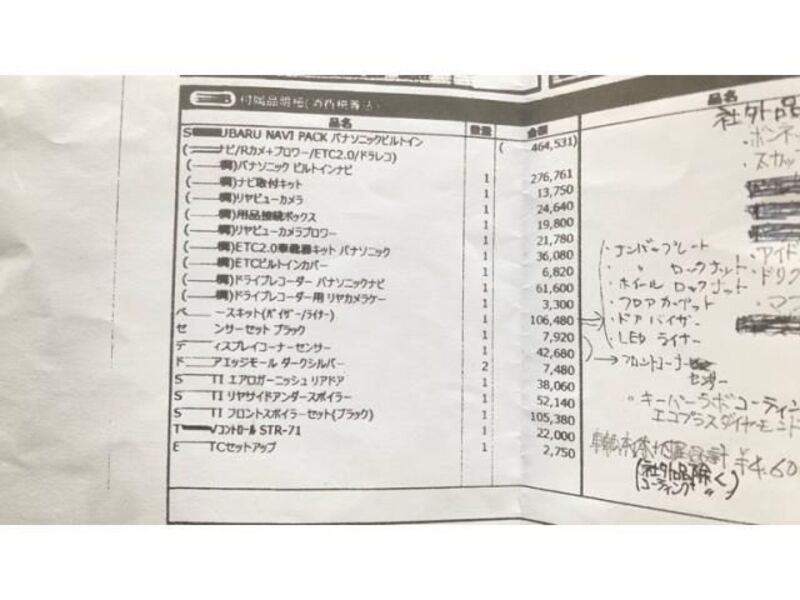 付属品明細(消費税算込)
品名 数量 金額
S UBARU NAVI PACK パナソニックビルトイン ( 464,531)
( ナビ/Rカメ+ブロワー/ETC2.0/ドラレコ)
( 欄)パナソニック ビルトインナビ 1 276,761
( 欄)ナビ取付キット 1 13,750
( 欄)リヤビューカメラ 1 24,640
( 欄)用品接続ボックス 1 19,800
( 欄)リヤビューカメラブロワー 1 21,780
( 欄)ETC2.0車載器キット パナソニック 1 36,080
( 欄)ETCビルトインカバー 1 6,820
( 欄)ドライブレコーダー パナソニックナビ 1 61,600
( 欄)ドライブレコーダー用 リヤカメラケー 1 3,300
ベ ースキット(バイザー/ライナー) 1 106,480
セ ンサーセット ブラック 1 7,920
デ ィスプレイコーナーセンサー 1 42,680
ド アエッジモール ダークシルバー 2 7,480
S TI エアロガーニッシュ リアドア 1 38,060
S TI リヤサイドアンダースポイラー 1 52,140
S TI フロントスポイラーセット(ブラック) 1 105,380
T Vコントロール STR-71 1 22,000
E TCセットアップ 1 2,750
・ナンバープレート
・ 〃 ロックナット
・ホイール ロックナット
・フロアカーペット
・ドアバイザー
・LEDライナー
→フロントコーナー
センサー
。キーパーラボコーティン
エコプラスダイヤモンド
¥4.60
(社外品除く
コーティング 〃 )
品名
社外品
・ボンネ
・スカッ
・アイド
・ドリク
・マフ